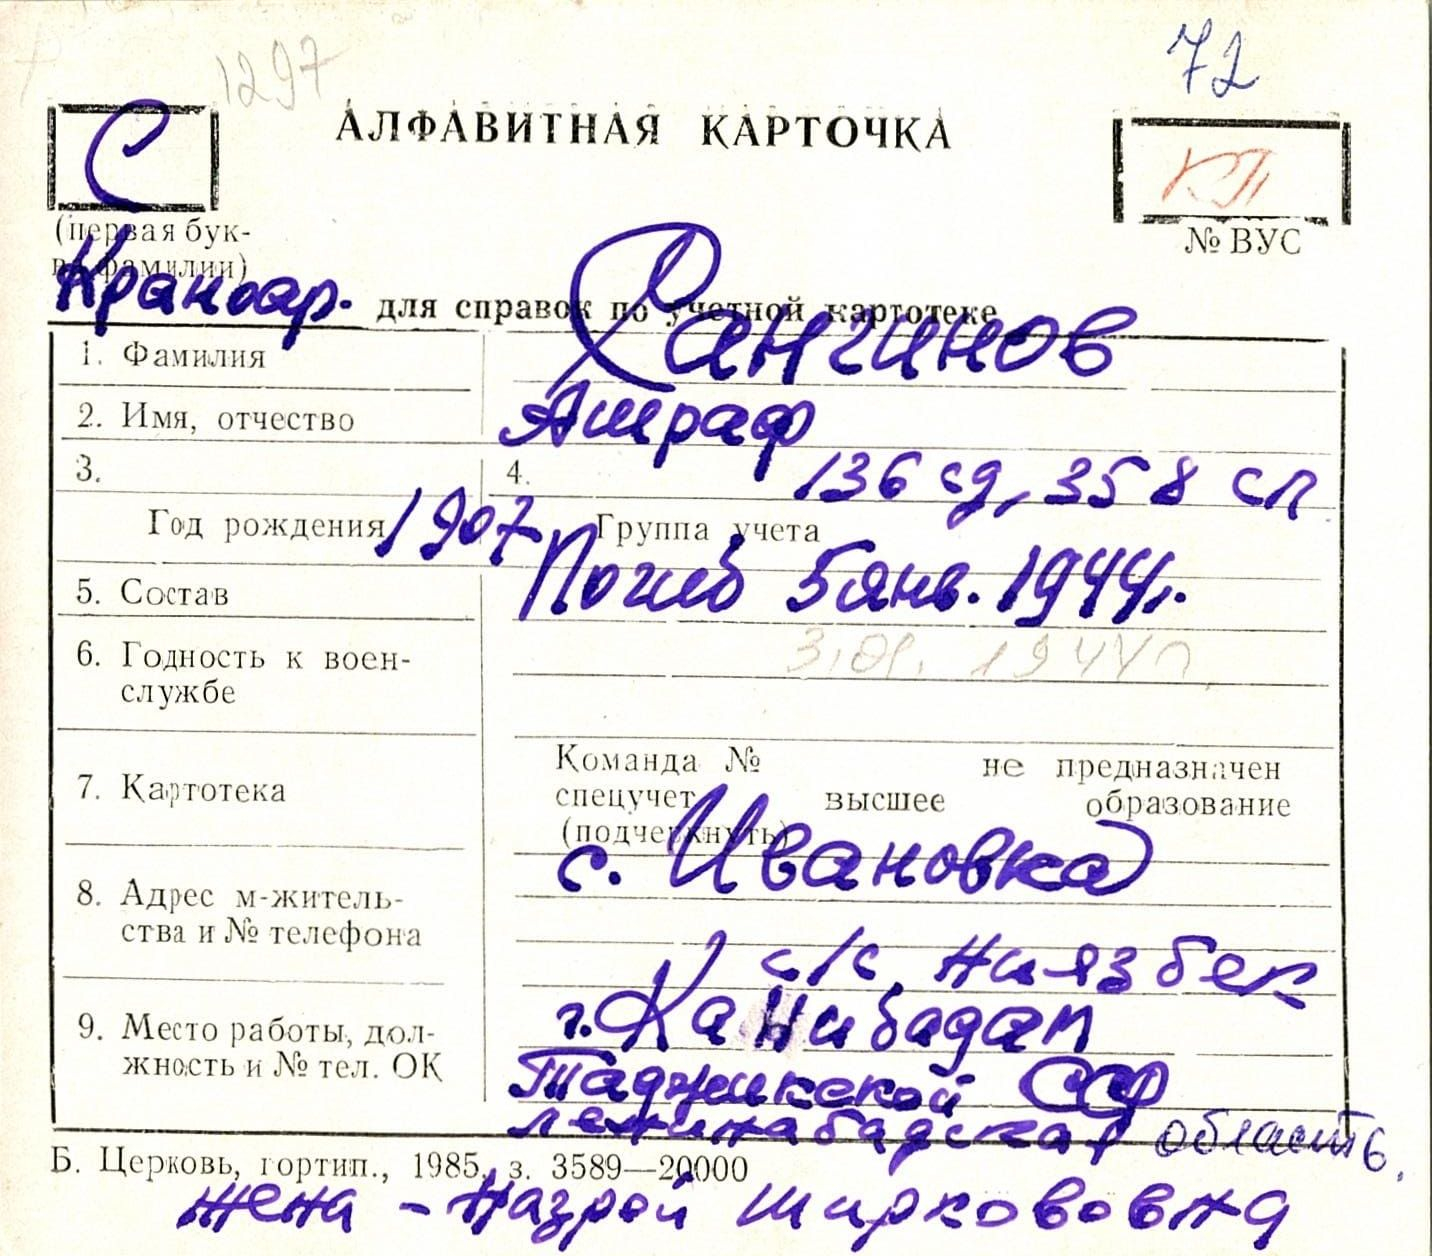 1297
72
С
АЛФАВИТНАЯ КАРТОЧКА
КП
(первая бук-
ва фамилии)
№ ВУС
Краноар. для справок по учетной картотеке
1. Фамилия Рангинов
2. Имя, отчество Ашраф
3. 4. 136 сд, 358 сп
Год рождения 1907 Группа учета
5. Состав Погиб 5 янв. 1944г.
6. Годность к воен-
службе
3.01.1944г.
7. Картотека
Команда № не предназначен
спецучет высшее образование
(подчеркнуть)
с. Ивановка
8. Адрес м-житель-
ства и № телефона
с/с Ниязбек
г. Канибадам
9. Место работы, дол-
жность и № тел. ОК
Таджикской ССР
ленинабадская область.
Б. Церковь, гортип., 1985, з. 3589—20000
жена - Назрой Ширкововна